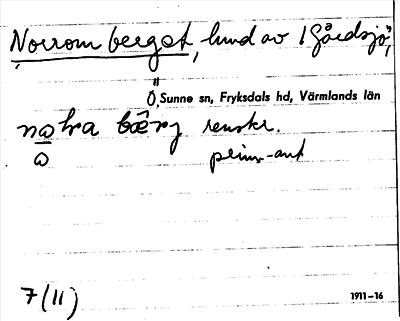 Norrom berget, lund av 1 Gårdsjö,
Ö. Sunne sn, Fryksdals hd, Värmlands län
bærg renskr.
prim-ant
7 (11) 1911-16